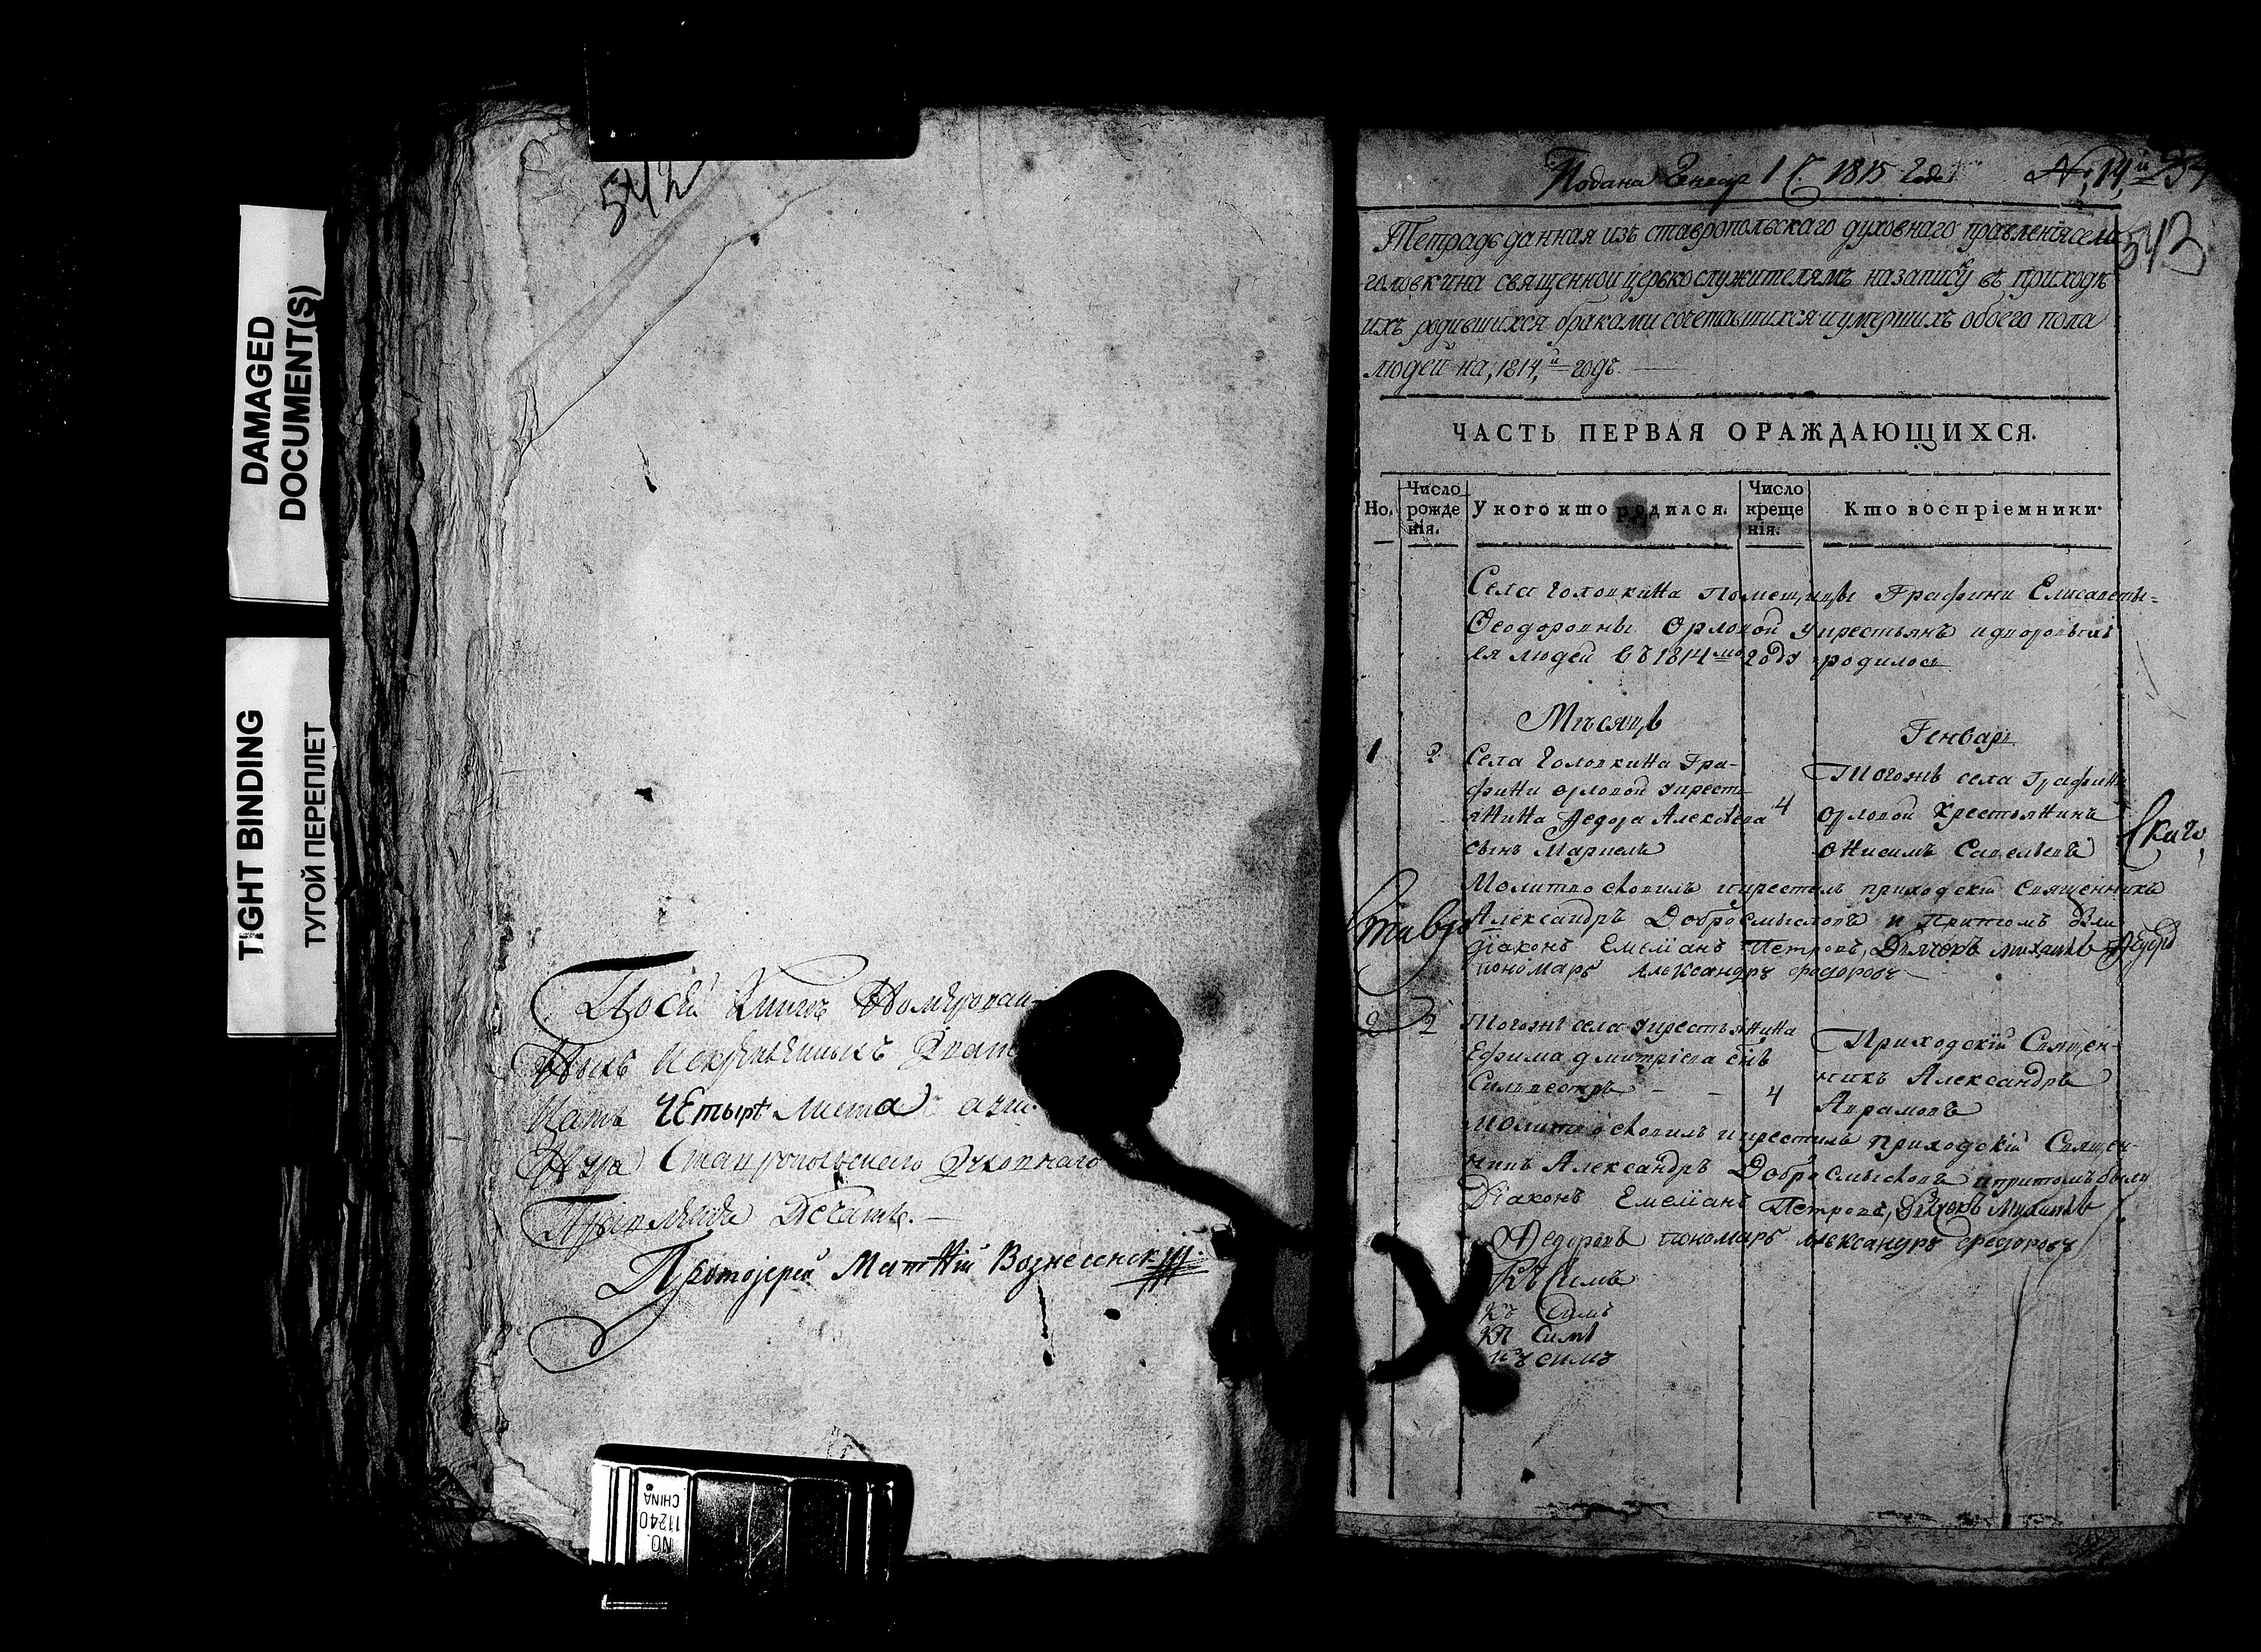 542
DAMAGED
DOCUMENT(S)
TIGHT BINDING
ТУГОЙ ПЕРЕПЛЕТ
По сей книгѣ
четыре листа
Ставропольскаго Духовнаго
Правленія печать.
Протоіерей Матѳій Вознесенскій
NO.
11240
CHINA
Подана Генвар 1815 года
№ 14й
543
Тетрадь данная изъ ставропольскаго духовнаго правленія села
головкина священно и церькослужителямъ на записку въ приходѣ
ихъ родившихся браками сочетавшихся и умершихъ обоего пола
людей на, 1814,й годъ.
ЧАСТЬ ПЕРВАЯ О РАЖДАЮЩИХСЯ.
Но.
Число рожденія.
У кого кто родился.
Число крещенія.
Кто воспріемники.
Села Головкина помещицы Графини Елисаветы
Феодоровны Орловой у крестьянъ и дворовыхъ
ея людей въ 1814мъ году родилося
Мѣсяцъ
Генварь
1
2
Села Головкина Гра-
фини Орловой у кресть
янина Федора Алексѣева
сынъ Маркелъ
4
Тогожъ села Графини
Орловой крестьянинъ
Онисимъ Савельевъ
скаго,
Молитвословилъ и крестилъ приходскій священникъ
Александръ Добросмысловъ и притомъ были
діаконъ Емеліанъ Петровъ, Дьячокъ Михаилъ Федоровъ
пономарь Александръ Федоровъ
Ставро
2
2
Тогожъ села у крестьянина
Ефима Дмитріева сынъ
Сильвестръ
4
Приходскій Священ-
никъ Александръ
Аврамовъ
Молитвословилъ и крестилъ приходскій Священ-
никъ Александръ Добросмысловъ и притомъ были
Діаконъ Емеліанъ Петровъ, Дьячекъ Михаилъ
Федоровъ пономарь Александръ Федоровъ
Къ Симъ
Къ Симъ
Къ Симъ
Къ Симъ